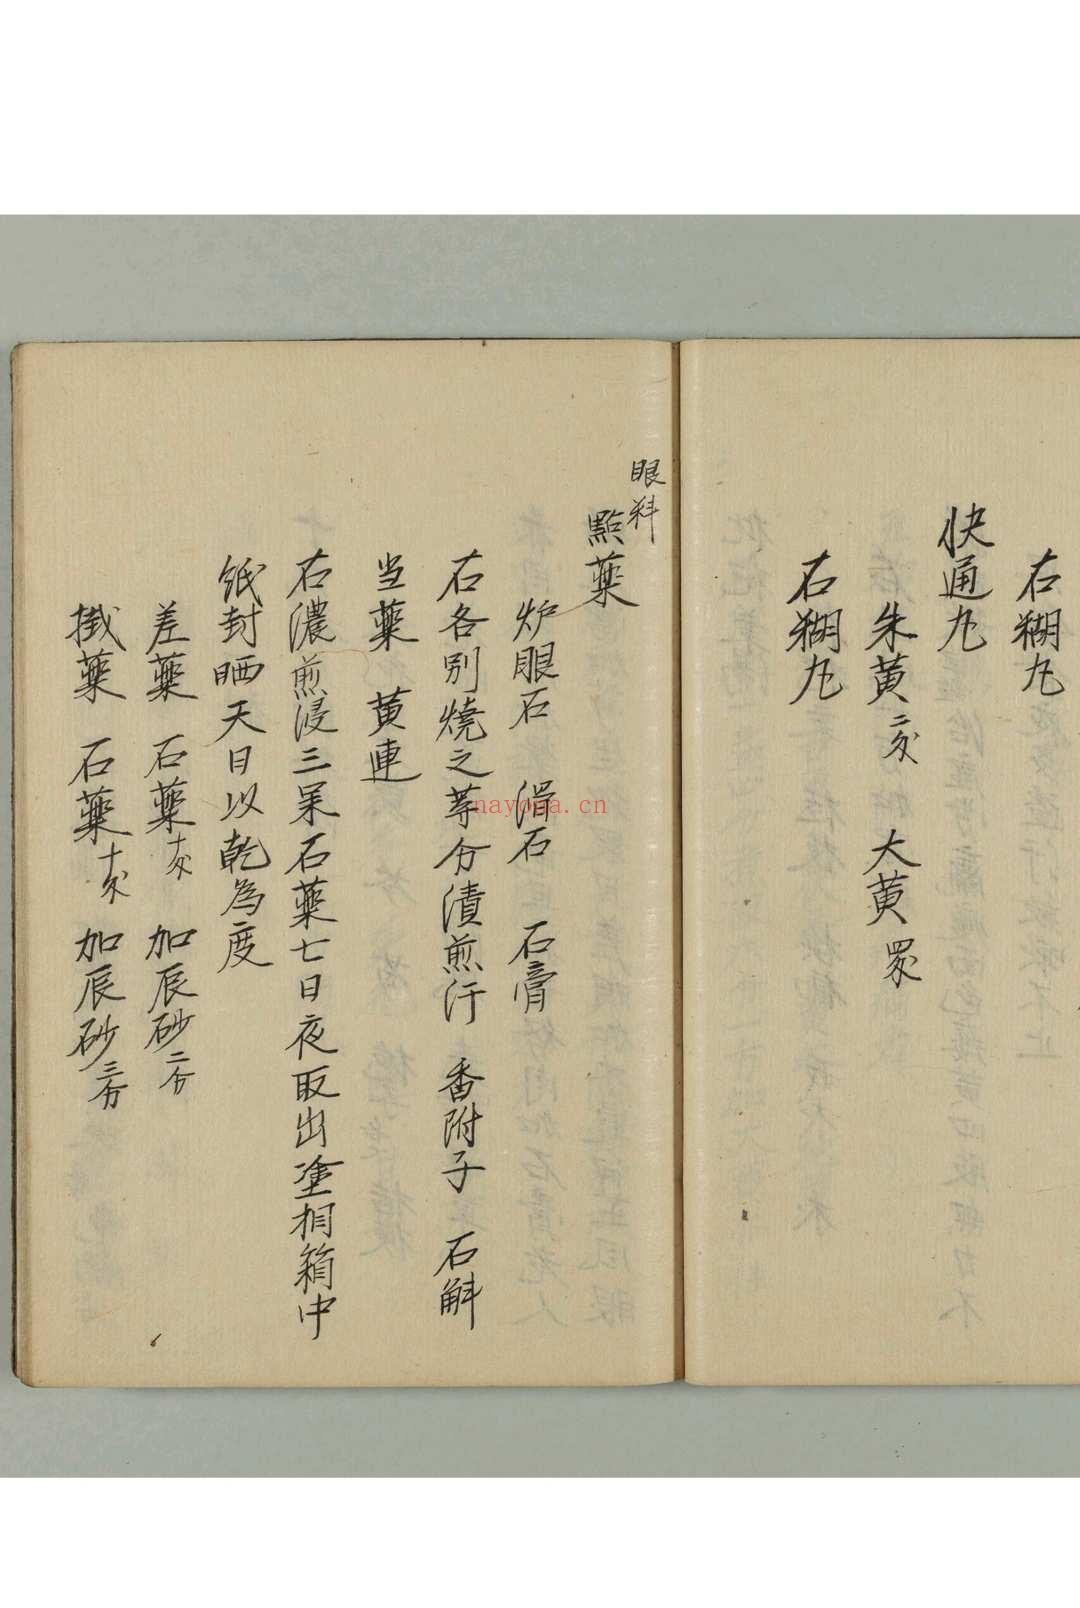 右糊丸
快通丸
朱黄二匁 大黄
右糊丸
眼科
點藥
炉眼石 滑石 石膏
右各別燒之等分漬煎汁 香附子 石斛
当藥 黄連
右濃煎浸三 石藥七日夜取出塗桐箱中
紙封晒天日以乾為度
差藥 石藥十匁 加辰砂二分
掛藥 石藥十匁 加辰砂三分
nayona.cn